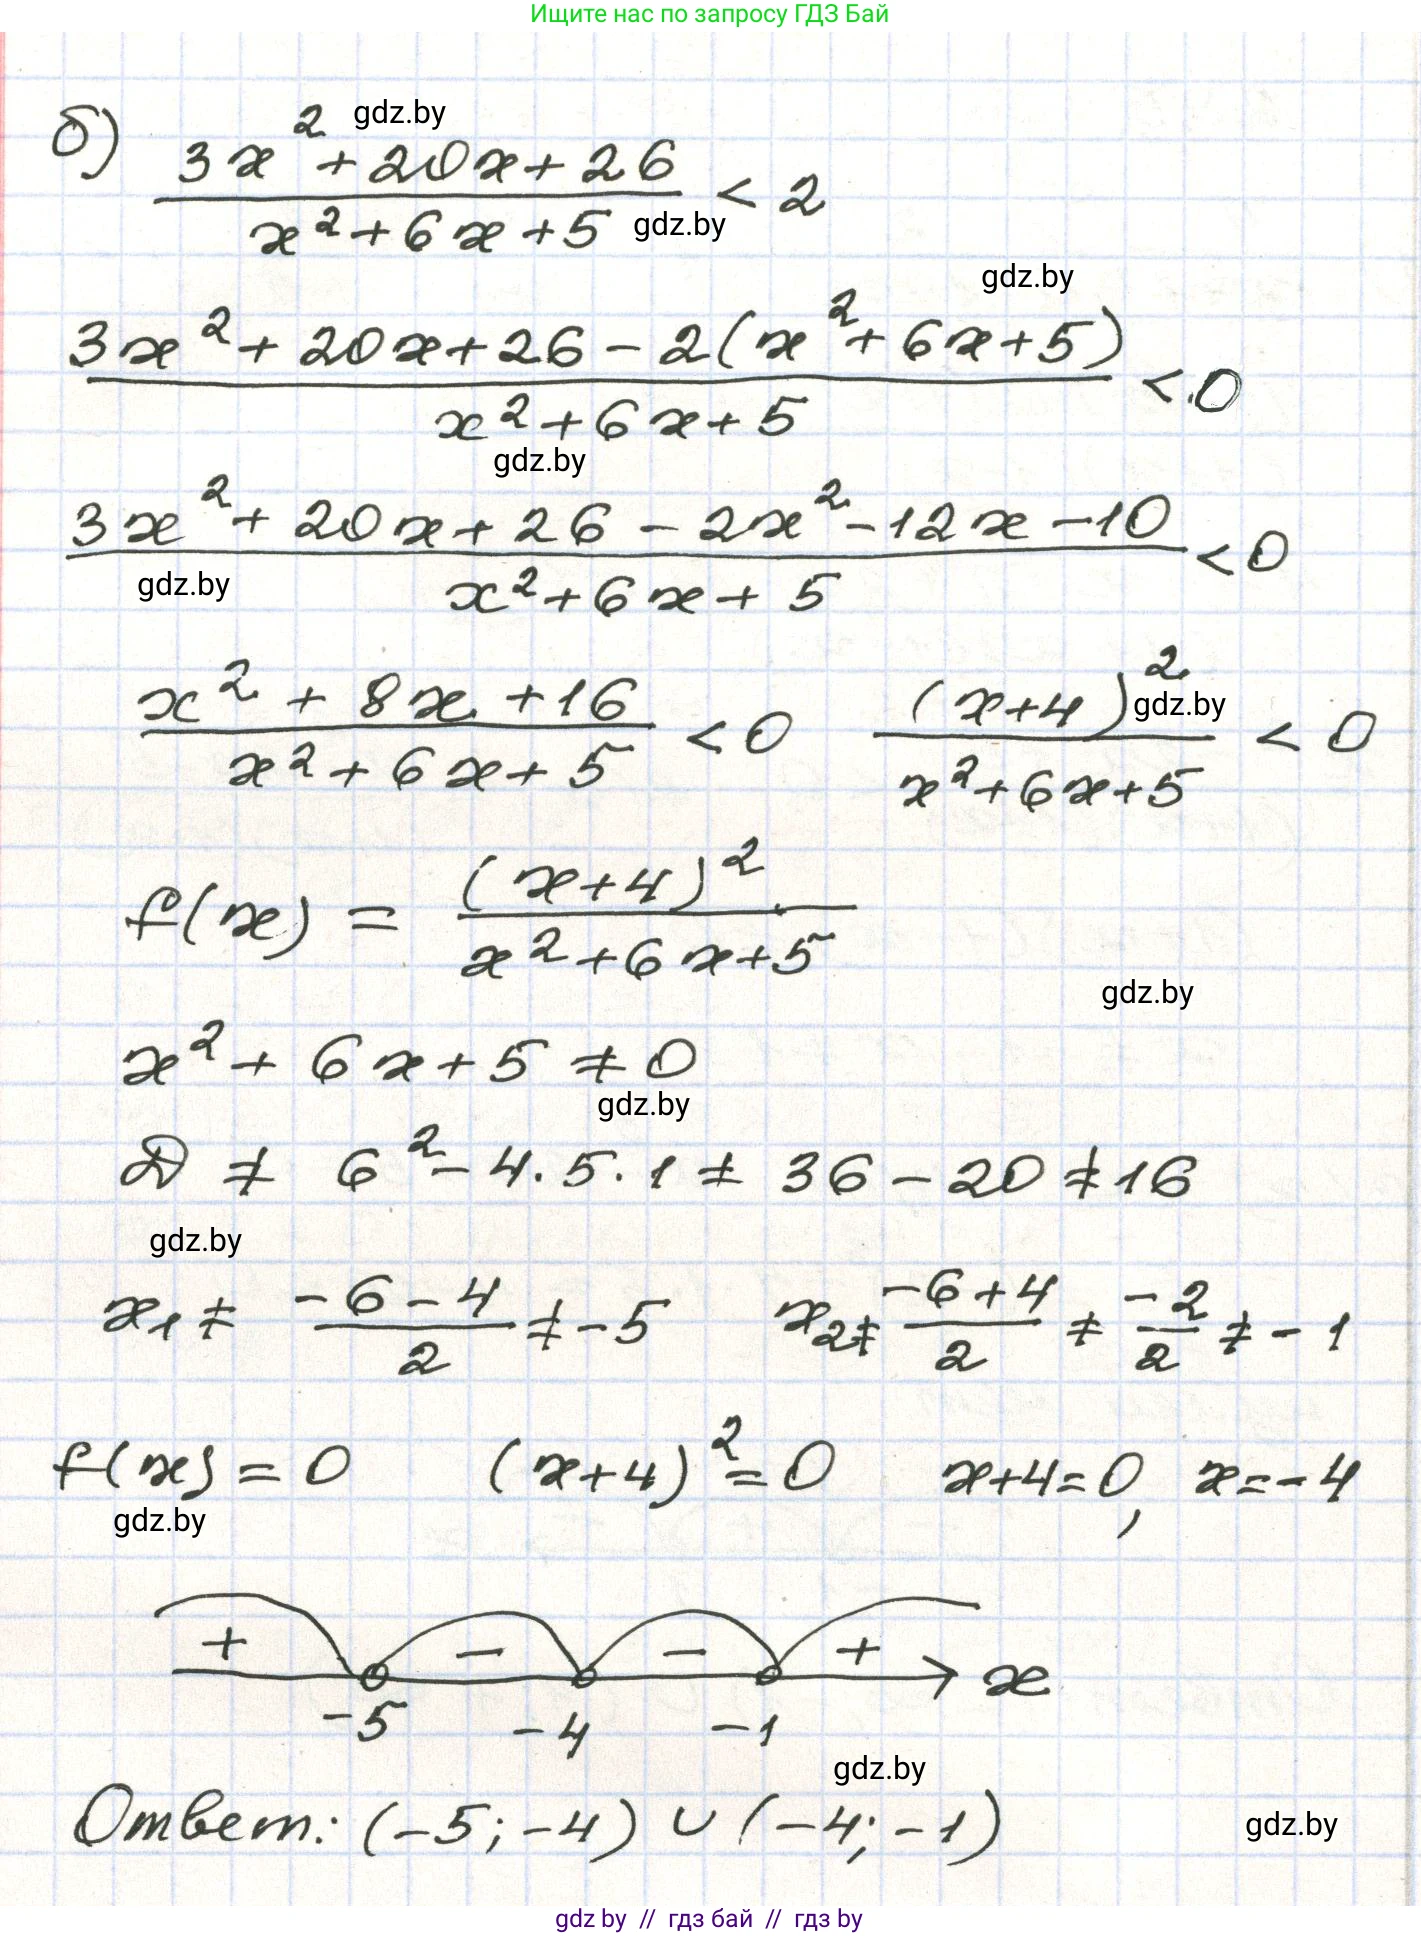 Ищите нас по запросу ГДЗ Бай
б) (3x² + 20x + 26)/(x² + 6x + 5) < 2
gdz.by
gdz.by
gdz.by
(3x² + 20x + 26 - 2(x² + 6x + 5))/(x² + 6x + 5) < 0
gdz.by
(3x² + 20x + 26 - 2x² - 12x - 10)/(x² + 6x + 5) < 0
gdz.by
(x² + 8x + 16)/(x² + 6x + 5) < 0 (x+4)²/(x² + 6x + 5) < 0
gdz.by
f(x) = (x+4)²/(x² + 6x + 5)
gdz.by
x² + 6x + 5 ≠ 0
gdz.by
D ≠ 6² - 4·5·1 ≠ 36 - 20 ≠ 16
gdz.by
x₁ ≠ (-6-4)/2 ≠ -5 x₂ ≠ (-6+4)/2 ≠ -2/2 ≠ -1
f(x) = 0 (x+4)² = 0 x+4=0, x=-4
gdz.by
+ - - + x
-5 -4 -1
gdz.by
Ответ: (-5; -4) ∪ (-4; -1)
gdz.by
gdz by // гдз бай // гдз by